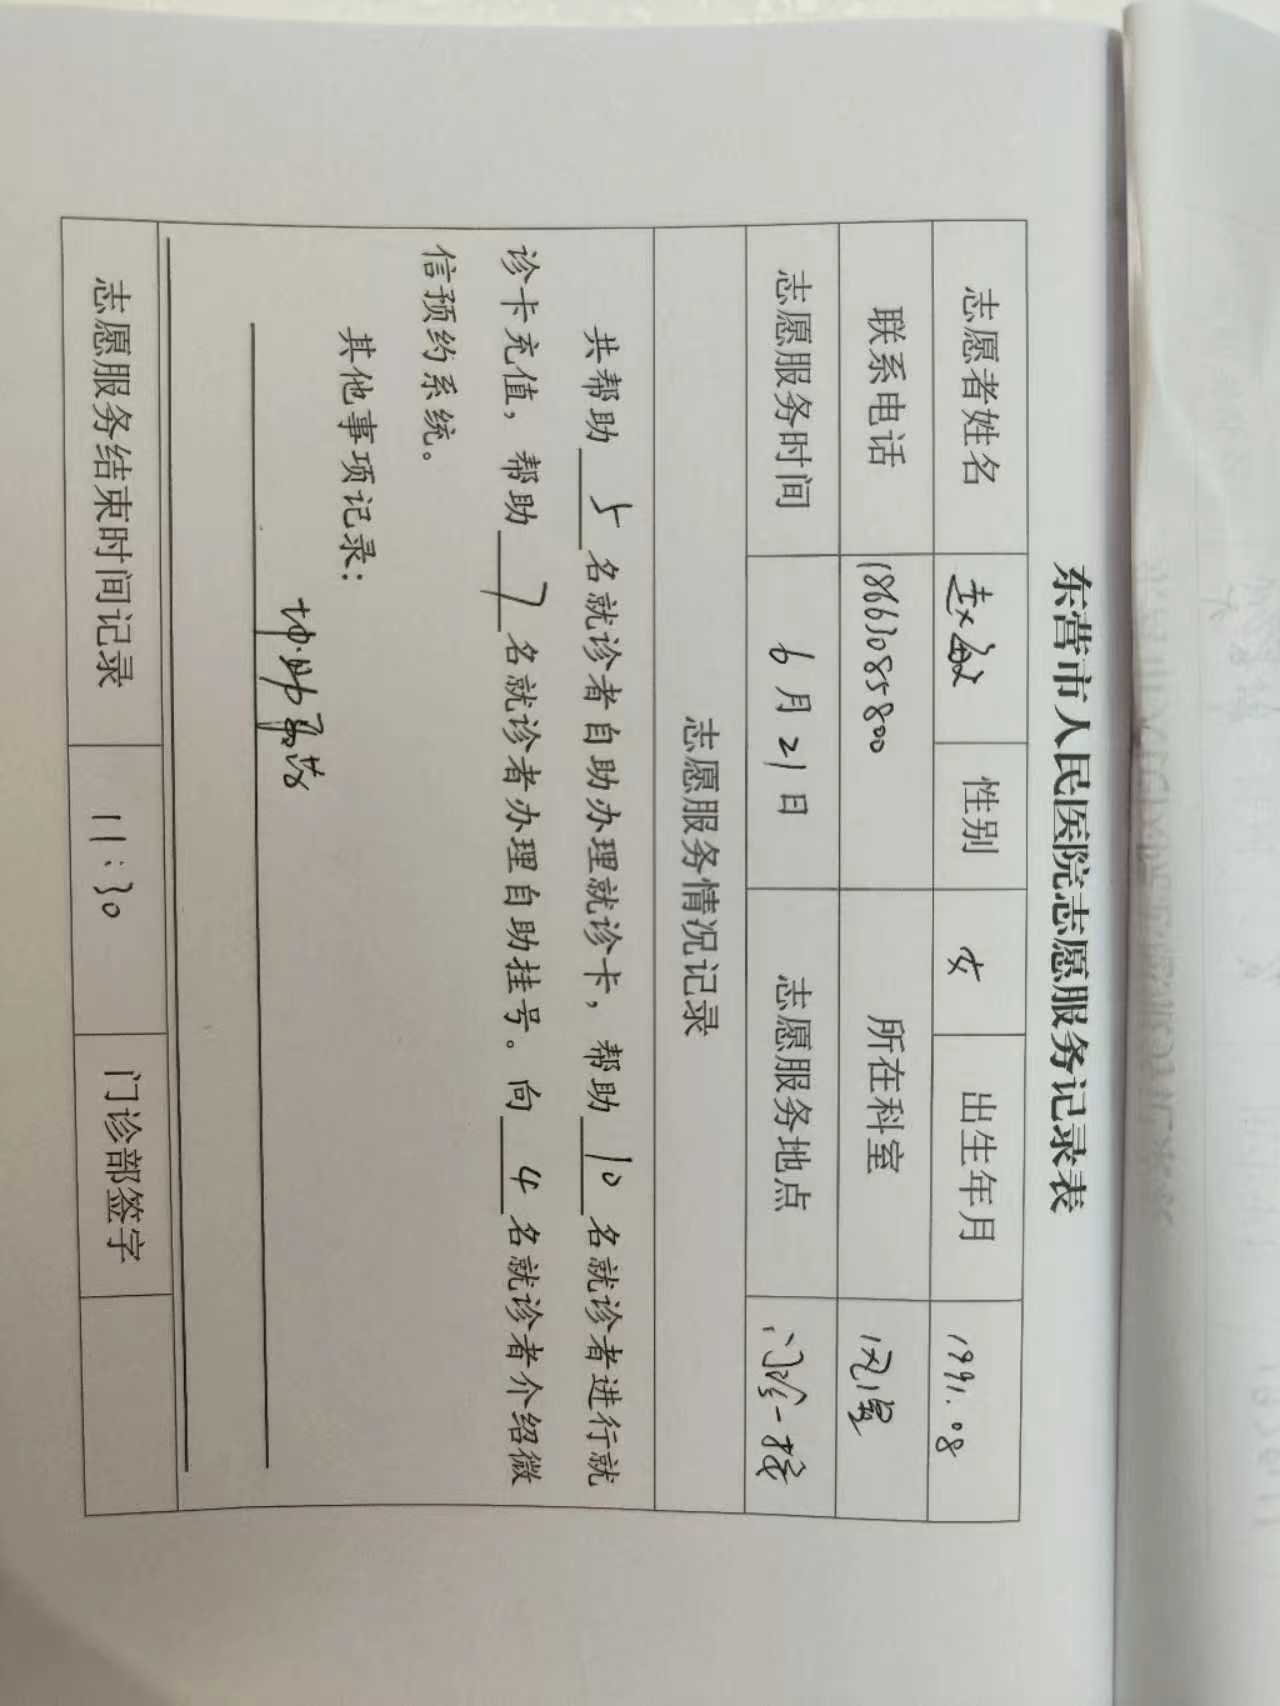 东营市人民医院志愿服务记录表
志愿者姓名 赵敏 性别 女 出生年月 1991.08
联系电话 18663085800 所在科室 风湿
志愿服务时间 6月21日 志愿服务地点 门诊一楼
志愿服务情况记录
共帮助 5 名就诊者自助办理就诊卡，帮助 10 名就诊者进行就
诊卡充值，帮助 7 名就诊者办理自助挂号。向 4 名就诊者介绍微
信预约系统。
其他事项记录：
志愿服务结束时间记录 11:30 门诊部签字